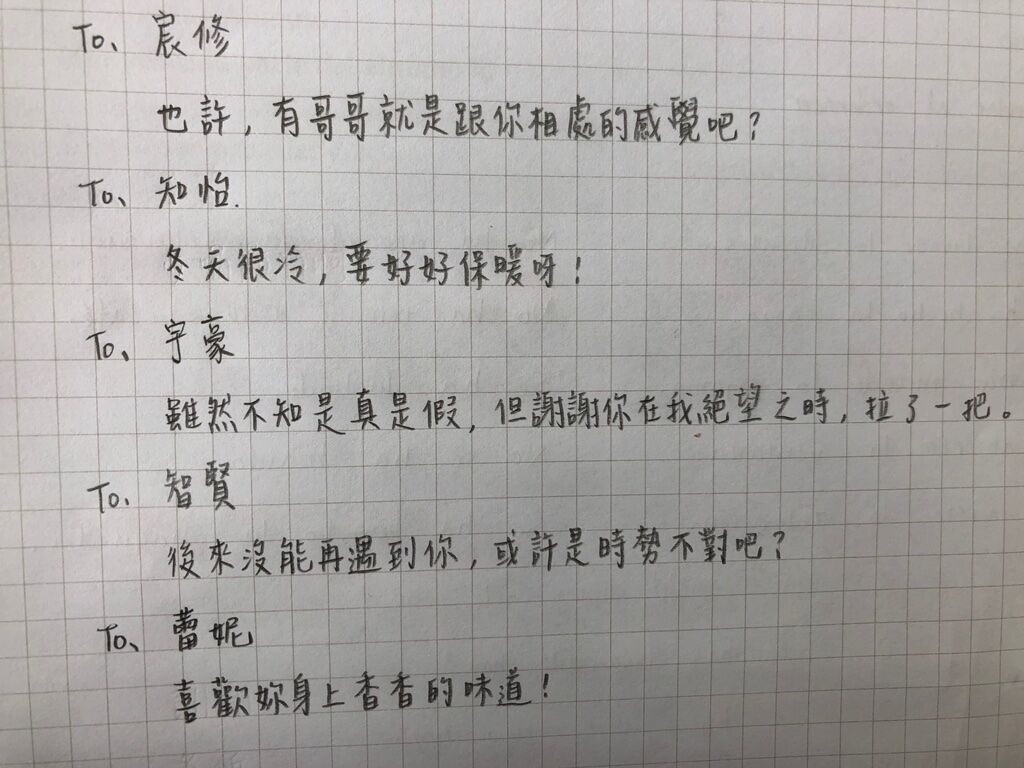 To、宸修
也許，有哥哥就是跟你相處的感覺吧？
To、知怡.
冬天很冷，要好好保暖呀！
To、宇豪
雖然不知是真是假，但謝謝你在我絕望之時，拉了一把。
To、智賢
後來沒能再遇到你，或許是時勢不對吧？
To、蕾妮
喜歡妳身上香香的味道！